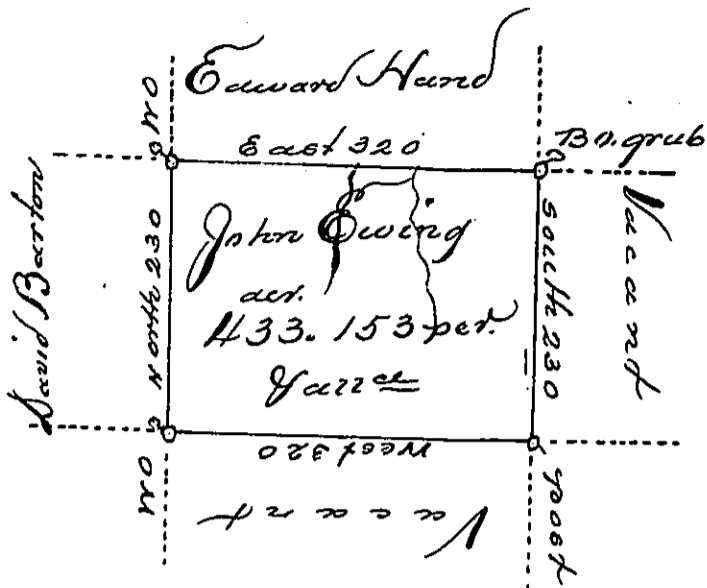 Edward Hand
W O
East 320
Bo. grub
David Barton
North 230
John Ewing
acr.
433. 153 per.
South 230
Vacant
West 320
W O
Vacant
post